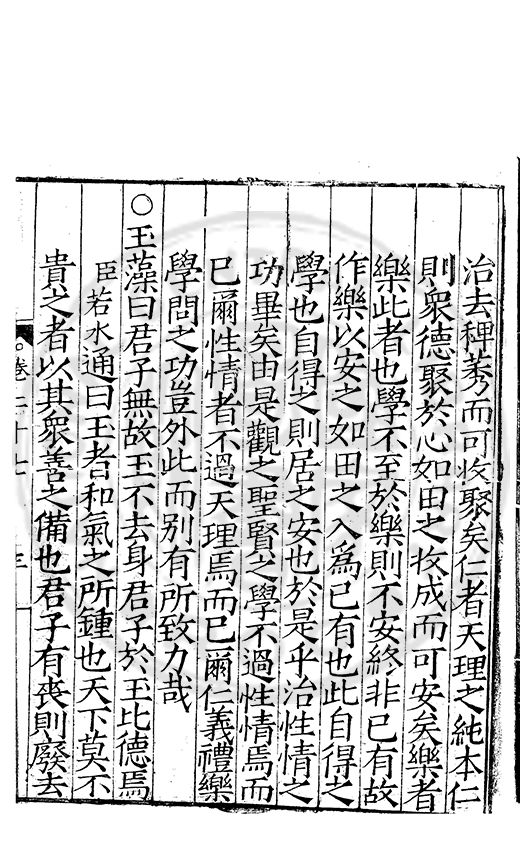 治去稗莠而可收聚矣仁者天理之純本仁
則衆德聚於心如田之收成而可安矣樂者
樂此者也學不至於樂則不安終非已有故
作樂以安之如田之入爲已有也此自得之
學也自得之則居之安也於是乎治性情之
功畢矣由是觀之聖賢之學不過性情焉而
已爾性情者不過天理焉而已爾仁義禮樂
學問之功豈外此而别有所致力哉
○玉藻曰君子無故玉不去身君子於玉比德焉
臣若水通曰玉者和氣之所鍾也天下莫不
貴之者以其衆善之備也君子有喪則廢去
卷二十七 三